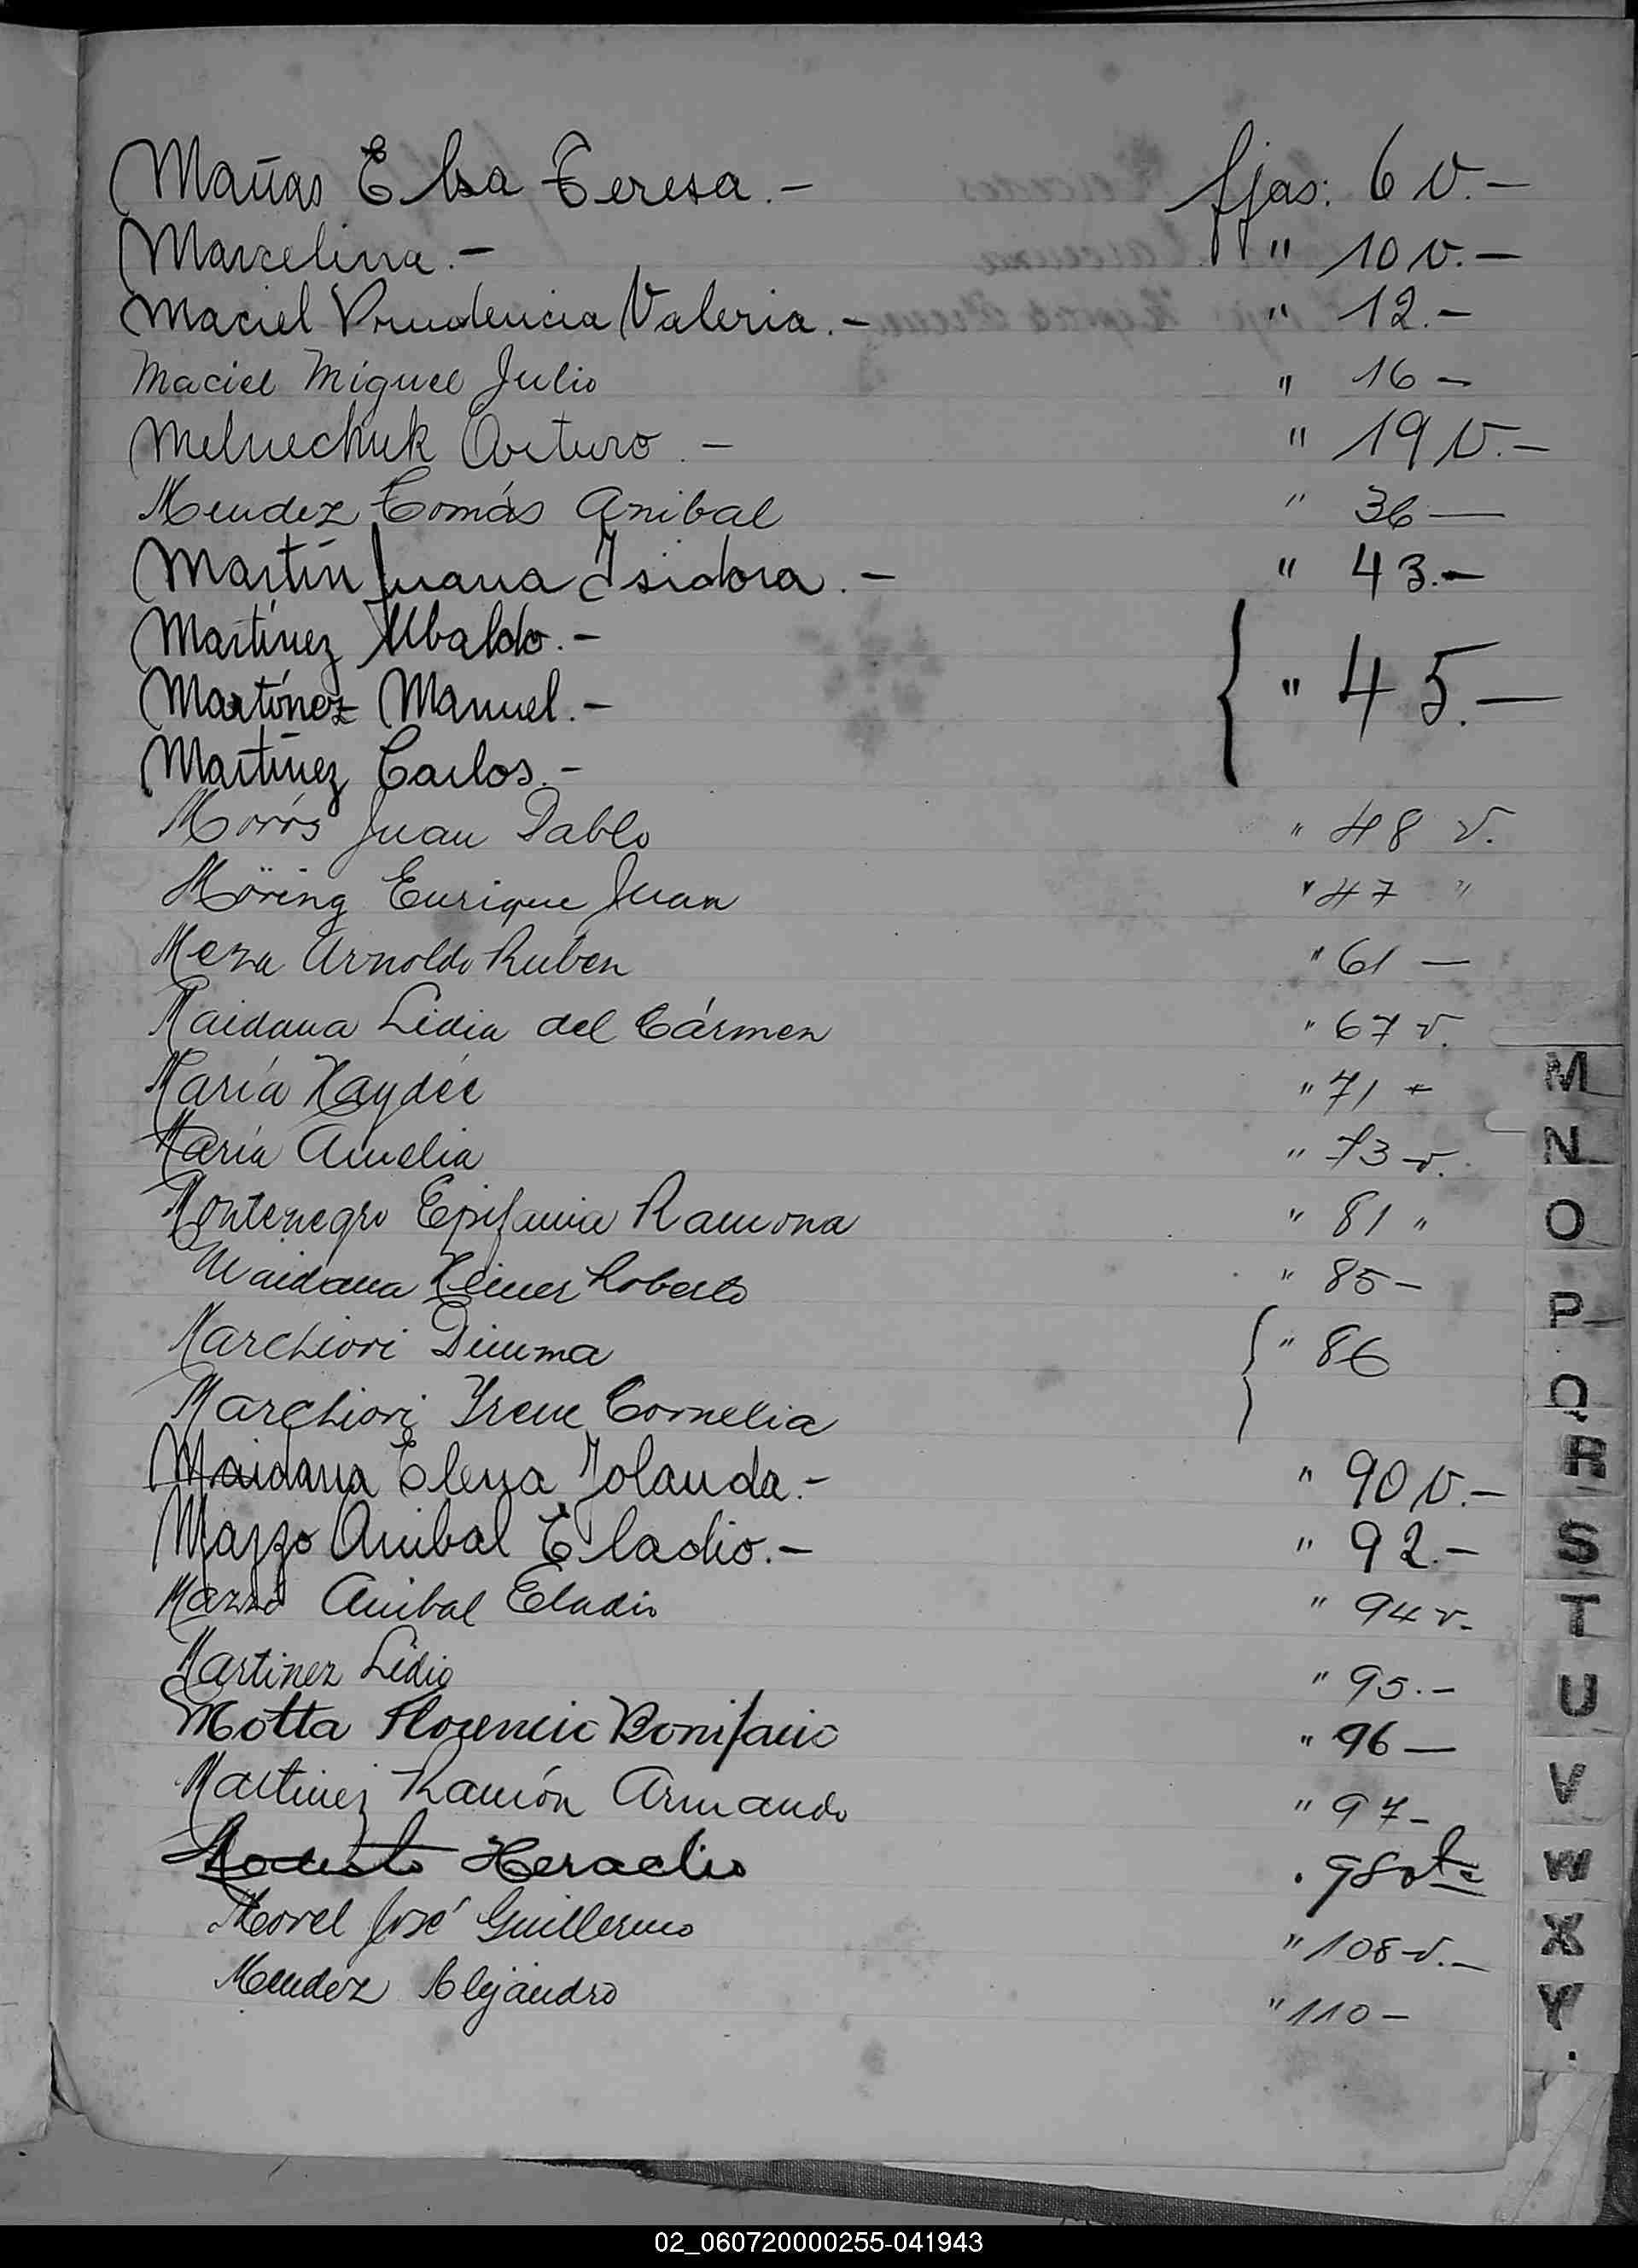 Mañas Elsa Teresa.- fjas: 6 v.-
Marcelina.- " 10 v.-
Maciel Prudencia Valeria.- " 12.-
Maciel Miguel Julio " 16 -
Melnechuk Arturo.- " 19 v.-
Mendez Tomás Anibal " 36 —
Martín Juana Isidora.- " 43.-
Martínez Ubaldo.-
Martínez Manuel.- { " 45.—
Martínez Carlos.-
Morós Juan Pablo " 48 v.
Möring Enrique Juan " 47 "
Meza Arnoldo Ruben " 61 —
Maidana Lidia del Cármen " 67 v.
María Haydée " 71 -
María Amelia " 73 v.
Montenegro Epifania Ramona " 81 "
Maidana Heimer Roberto " 85 -
Marchiori Dimma { " 86
Marchiori Irene Cornelia
Maidana Elena Iolanda.- " 90 v.-
Mazzo Anibal Eladio.- " 92.-
Mazzo Anibal Eladio " 94 v-
Martinez Lidio " 95.-
Motta Florencio Bonifacio " 96 —
Martinez Ramón Armando " 97 -
Modesto Heraclio " 98 vta
Morel José Guillermo " 108 v.-
Mendez Alejandro " 110 -
M
N
O
P
Q
R
S
T
U
V
W
X
Y
02_060720000255-041943